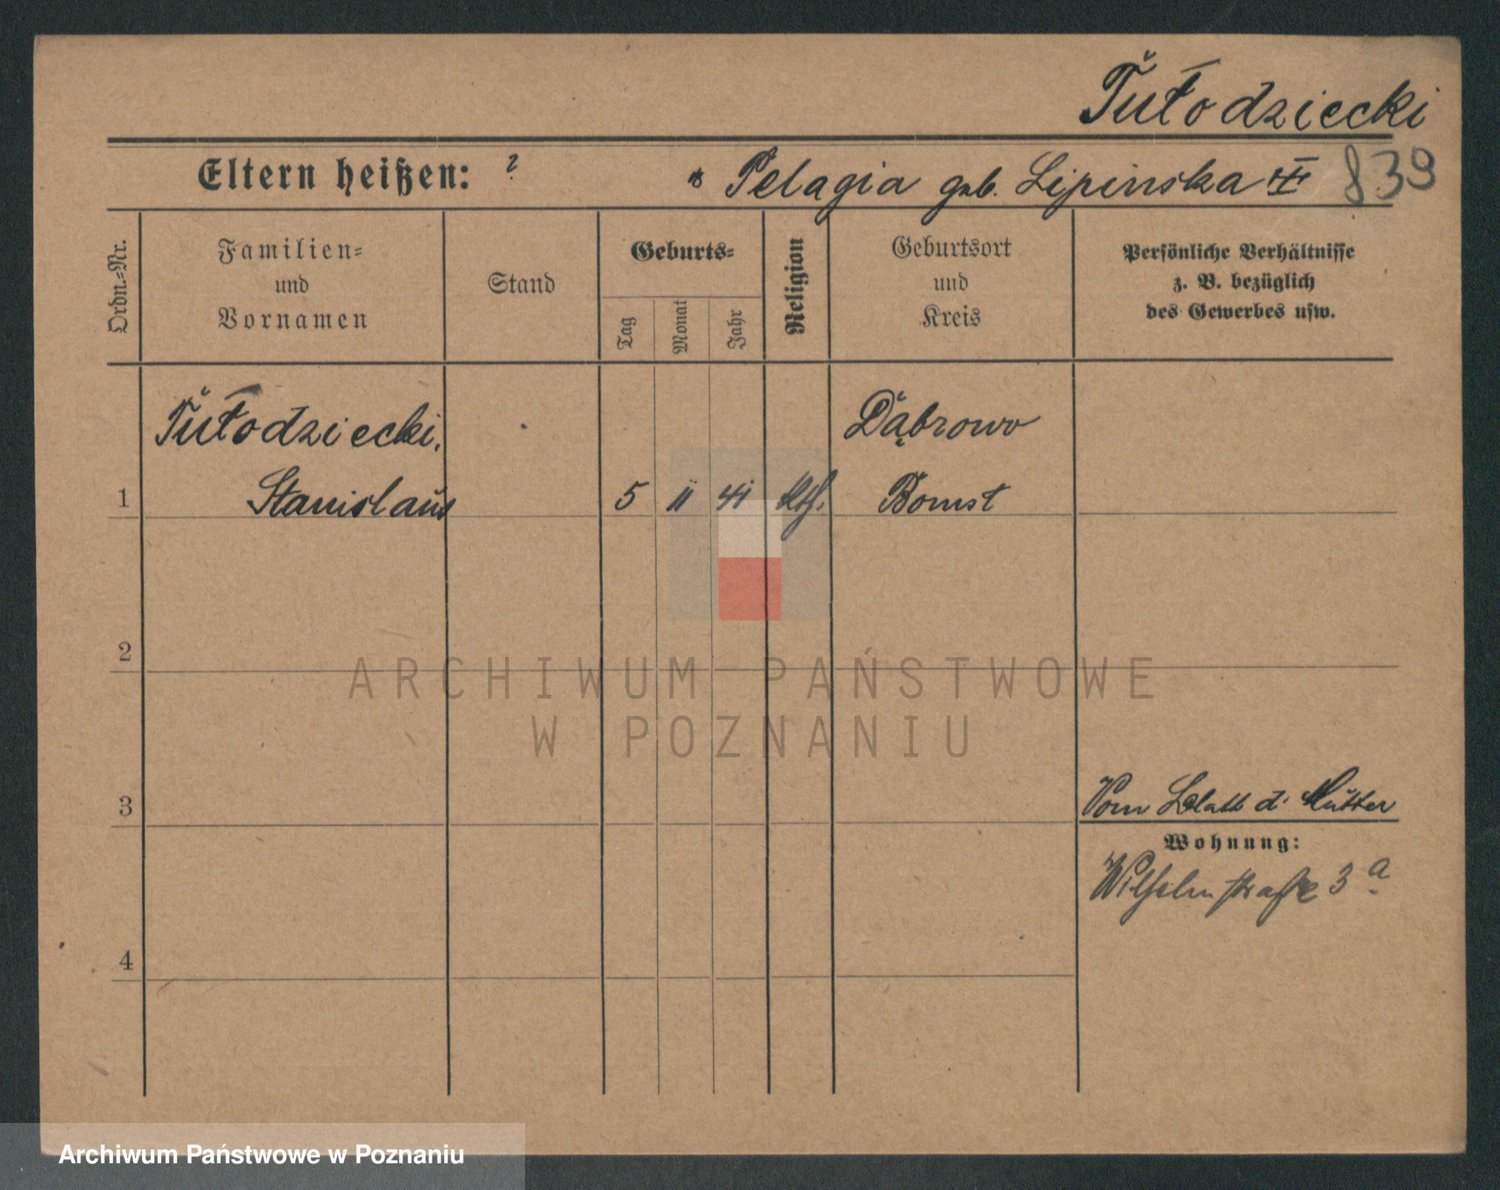 Tułodziecki
Eltern heißen: ? Pelagia geb. Lipinska 839
Ordn.=Nr.
Familien=
und
Vornamen
Stand
Geburts=
Tag
Monat
Jahr
Religion
Geburtsort
und
Kreis
Persönliche Verhältnisse
z. B. bezüglich
des Gewerbes usw.
Tułodziecki,
Dąbrowo
1 Stanislaus 5 11 41 kth. Bomst
2
ARCHIWUM PAŃSTWOWE
W POZNANIU
3
Vom Blatt d. Mutter
Wohnung:
Wilhelmstraße 3 a
4
Archiwum Państwowe w Poznaniu